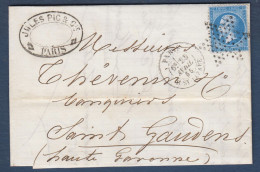 JULES PIC & Cᴵᴱ
PARIS
Messieurs
Thévenin & Cie
banquiers
Saint Gaudens
(haute Garonne)